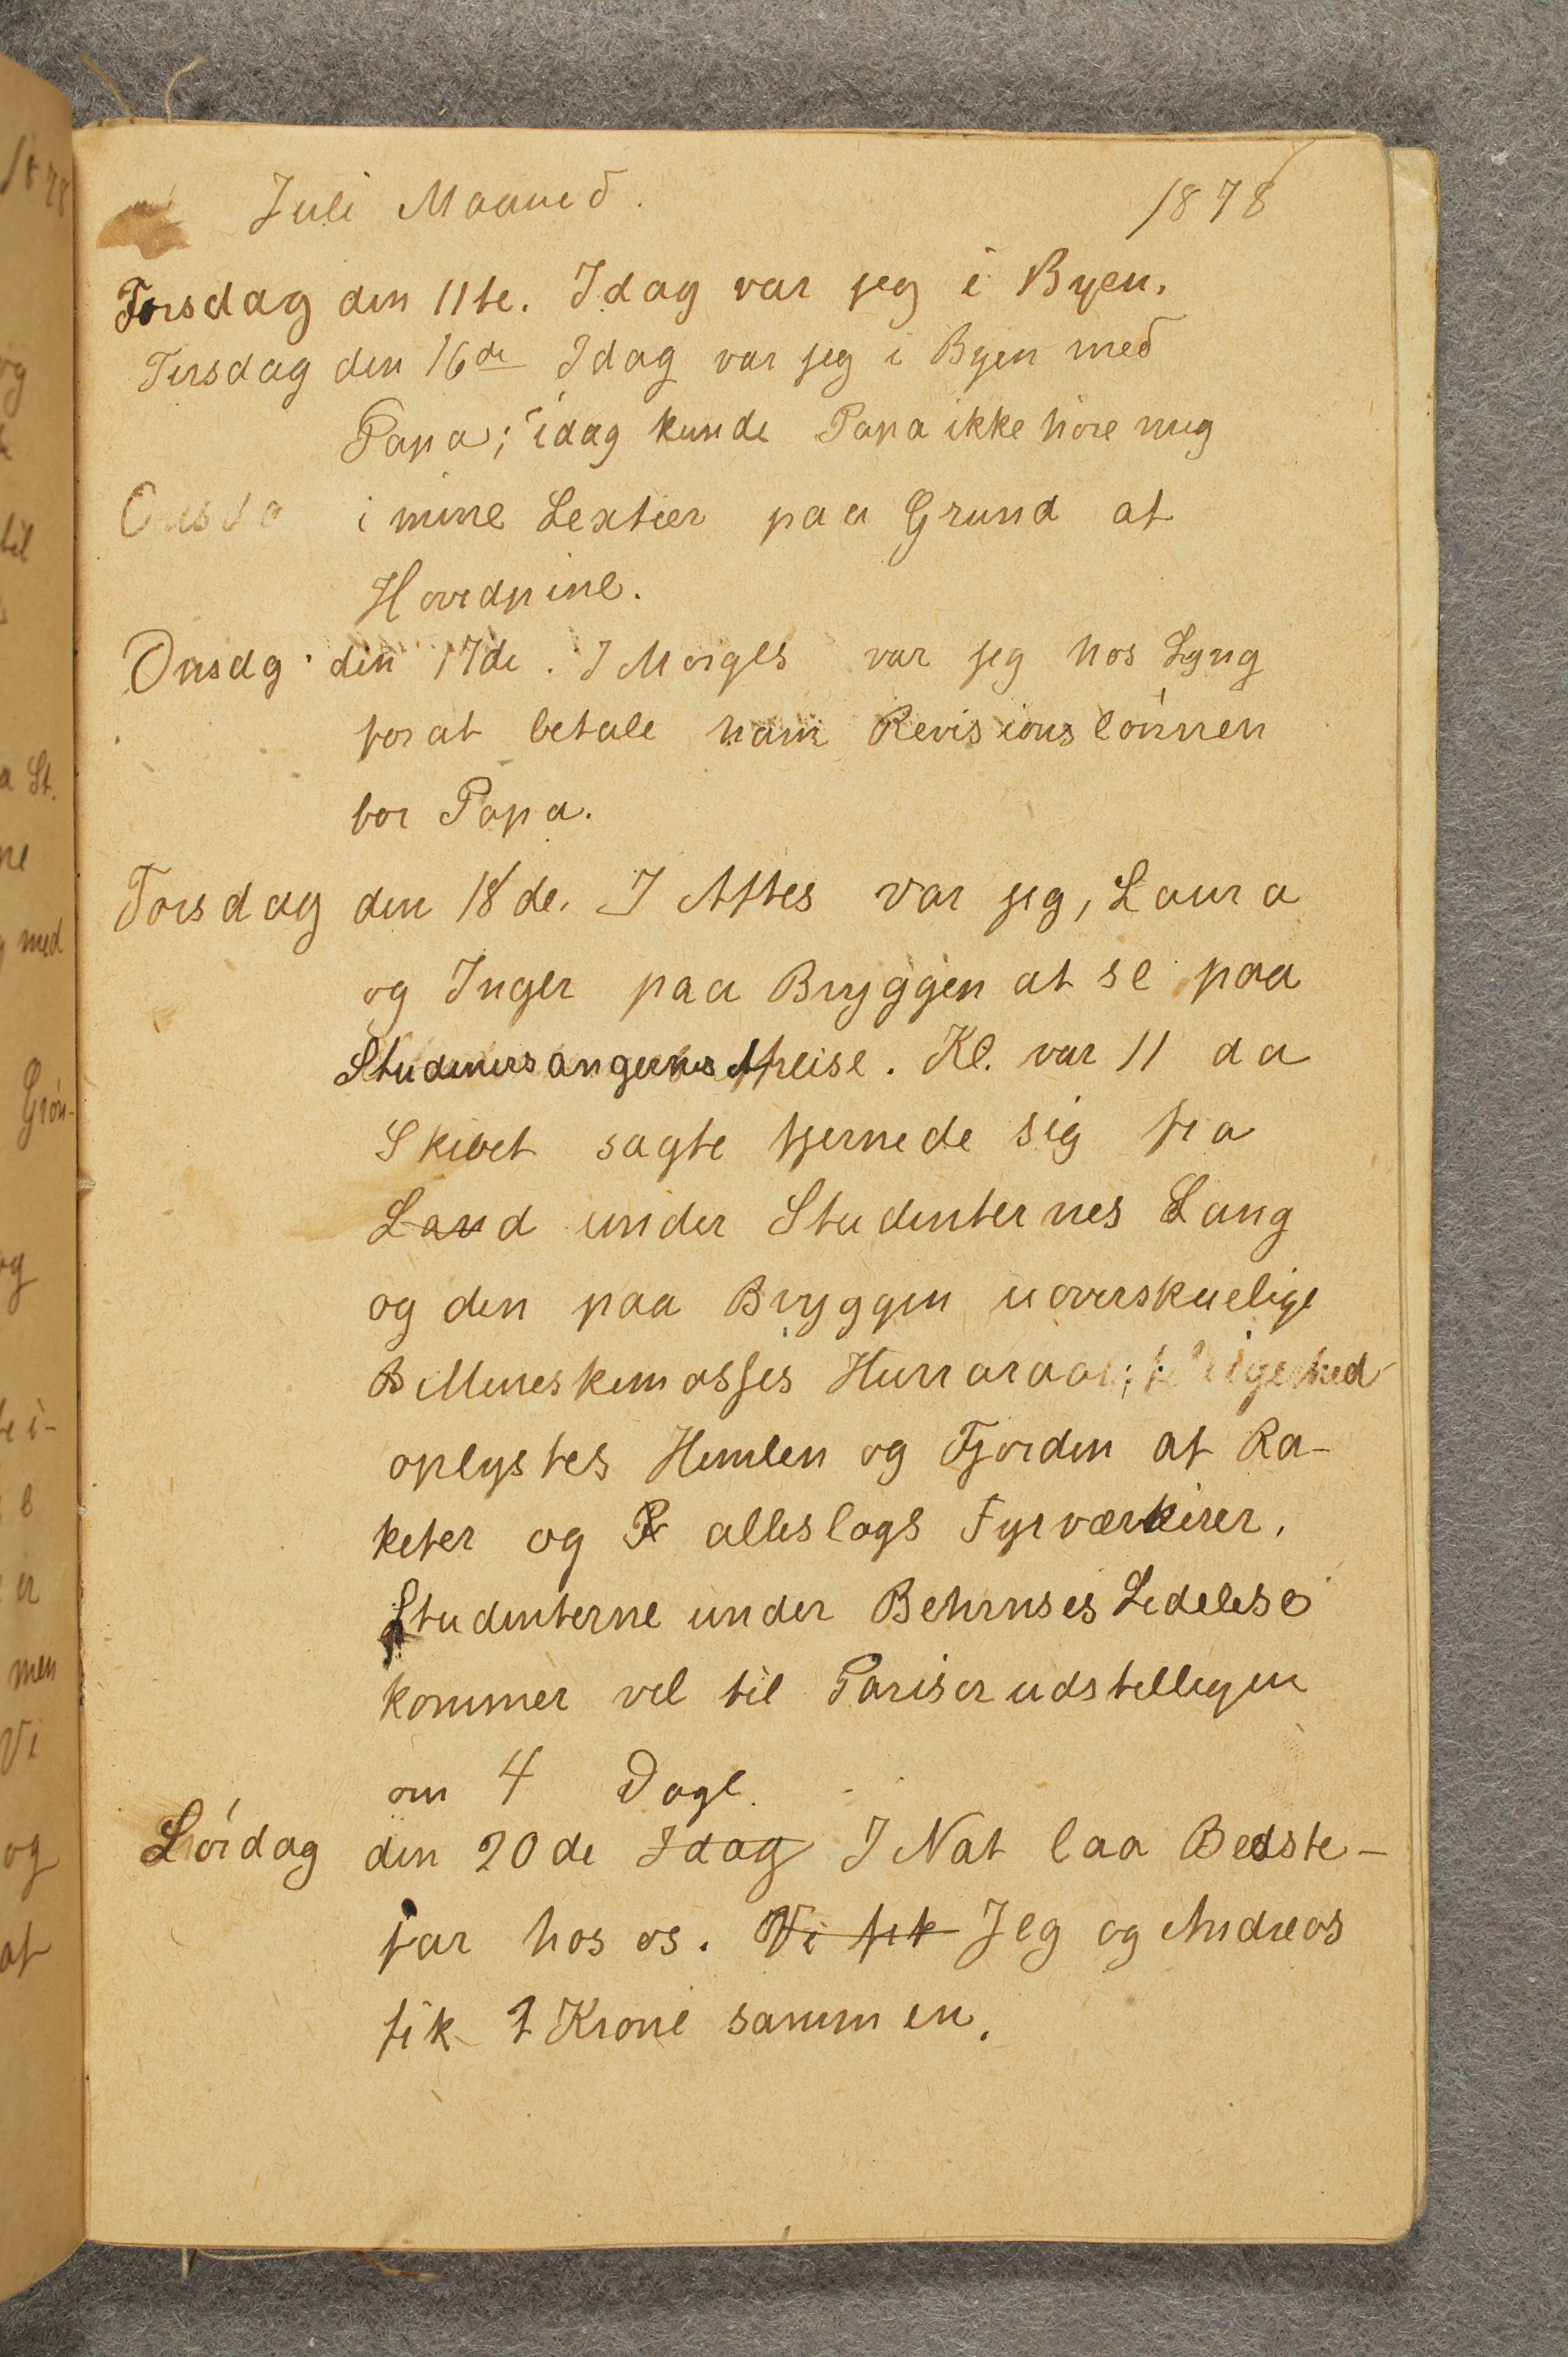 Juli Maaned. 1878
Torsdag den 11te. Idag var jeg i Byen.
Tirsdag den 16de Idag var jeg i Byen med
Papa; idag kunde Papa ikke høre mig
Onsda i mine Lextier paa Grund af
Hovedpine.
Onsdg den 17de. I Morges var jeg hos Lyng
forat betale ham Revisionslønnen
for Papa.
Torsdag den 18de. I Aftes var jeg, Laura
og Inger paa Bryggen at se paa
Studenersangernes Afreise. Kl. var 11 da
Skibet sagte fjernede sig fra
Land under Studenternes Sang
og den paa Bryggen uoverskuelige
Meneskemasses Hurraraab;
oplystes Himlen og Fjorden af Ra-
keter og alleslags Fyrværkirer.
Studenterne under Behrnses Ledelse
kommer vel til Pariserudstellingen
om 4 Dage.
Lørdag den 20de Idag I Nat laa Bedste-
far hos os. Vi fik Jeg og Andreas
fik 2 Krone sammen.